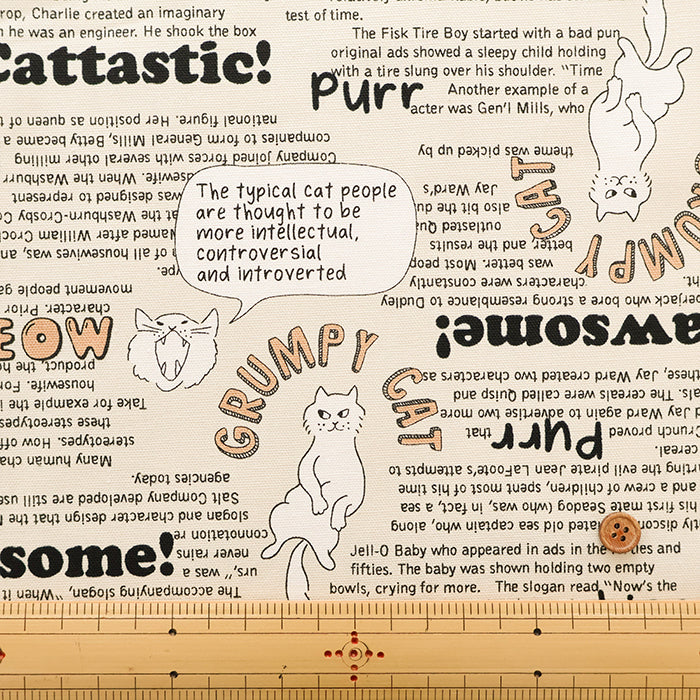 rop, Charlie created an imaginary
he was an engineer. He shook the box
Cattastic!
test of time.
The Fisk Tire Boy started with a bad pun
original ads showed a sleepy child holding
with a tire slung over his shoulder. "Time
Purr
Another example of a
acter was Gen'l Mills, who
national figure. Her position as queen of t
companies to form General Mills, Betty became a
Company joined forces with several other milling
housewife. When the Washburn
was designed to represent
at the Washburn-Crosby
Named after William Crock
of all housewives, was, an
The typical cat people
are thought to be
more intellectual,
controversial
and introverted
theme was picked up by
Jay Ward's
also bit the du
outlasted
better, and the results
was better. Most peop
characters were constantly
who bore a strong resemblance to Dudley
GRUMPY CAT
movement people ga
character. Prior
MEOW
product, the ho
housewife. For
Take for example the i
these stereotypes
stereotypes. How off
Many human cha
GRUMPY CAT
awsome!
these, Jay Ward created two characters as
als. The cereals were called Quisp and
d Jay Ward again to advertise two more
Crunch proved
Purr
that
cereal.
rting the evil pirate Jean LaFoote's attempts to
and a crew of children, spent most of his time
his first mate Seadog (who was, in fact, a sea
old sea captain who, along
agencies today.
Salt Company developed are still use
slogan and character design that the M
connotation re
never rains
urs," was a
The accompanying slogan, "When it
some!
Jell-O Baby who appeared in ads in the
fifties. The baby was shown holding two empty
bowls, crying for more. The slogan read "Now's the